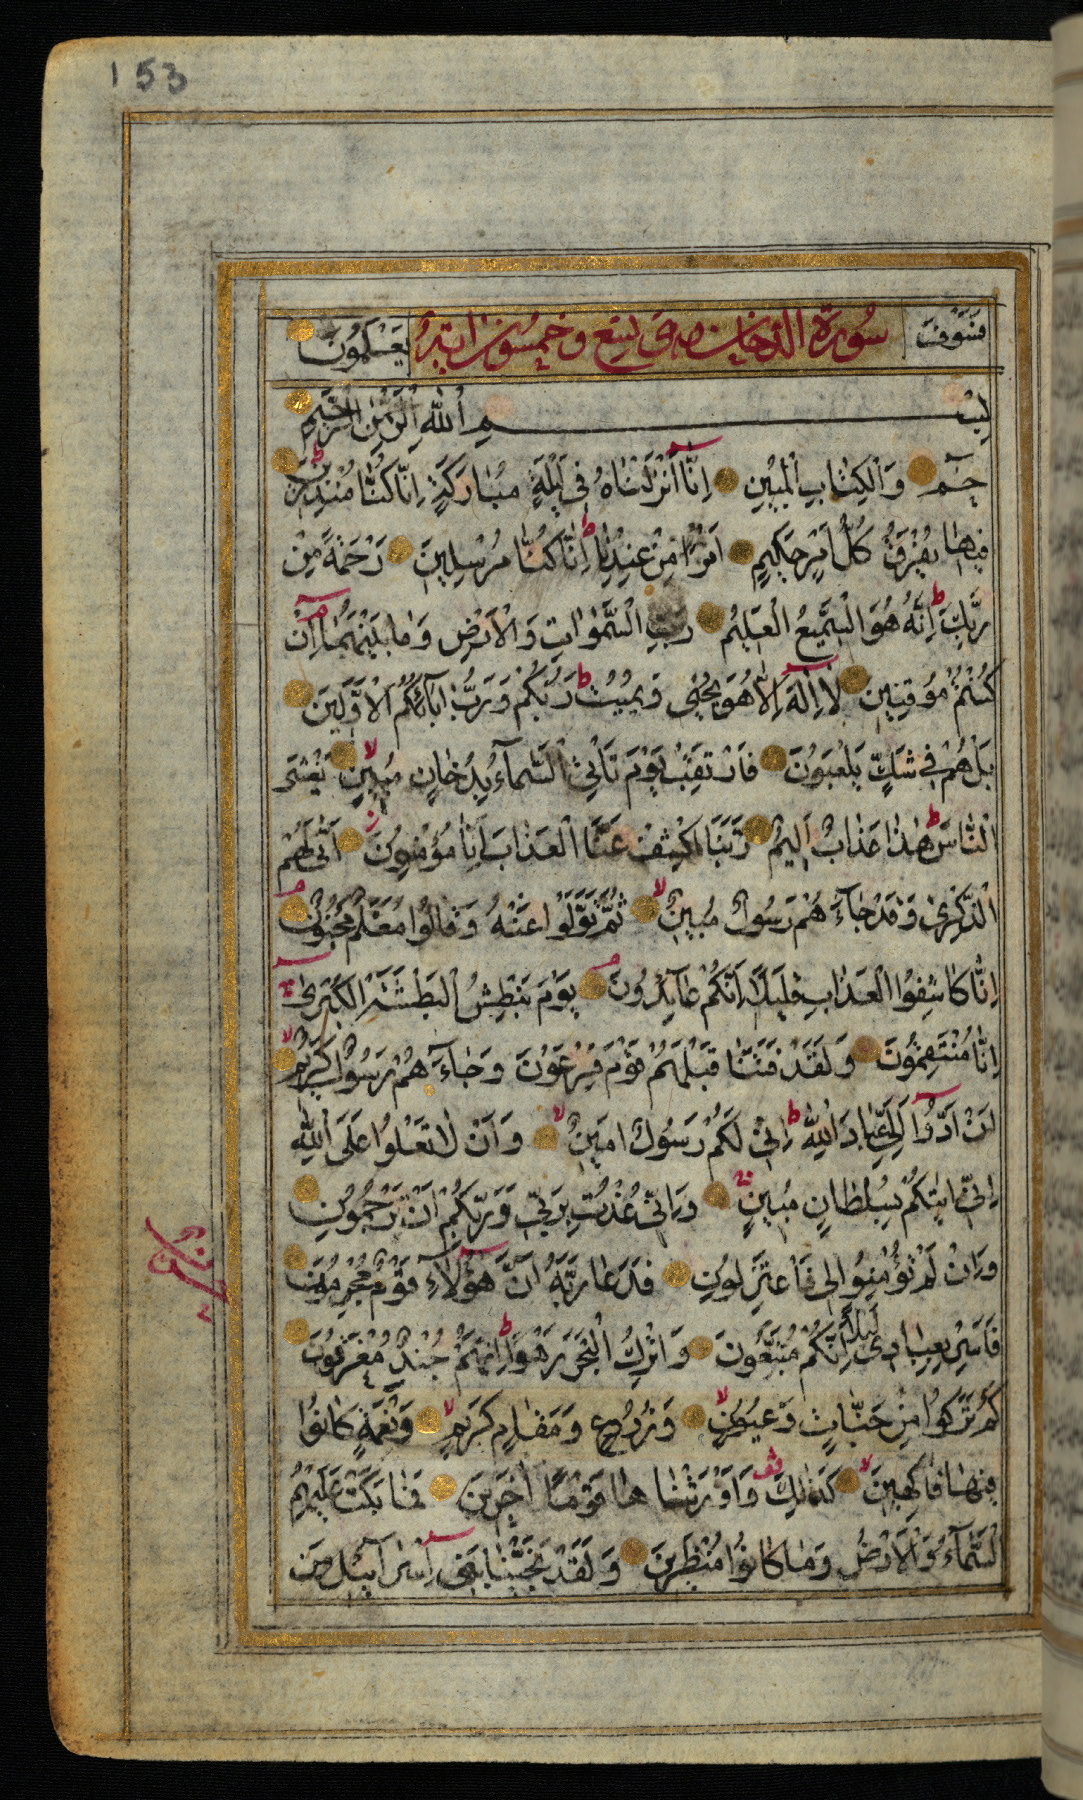 153
فَسَوْفَ سُورَة الدخان وهى تسع وخمسون اية يَعْلَمُونَ
بِسْمِ اللهِ الرَّحْمٰنِ الرَّحِيمِ
حٰمٓ وَالْكِتَابِ الْمُبِينِ اِنَّٓا اَنْزَلْنَاهُ فِى لَيْلَةٍ مُبَارَكَةٍ اِنَّا كُنَّا مُنْذِرِينَ
فِيهَا يُفْرَقُ كُلُّ اَمْرٍ حَكِيمٍ اَمْرًا مِنْ عِنْدِنَا ط اِنَّا كُنَّا مُرْسِلِينَ رَحْمَةً مِنْ
رَبِّكَ ط اِنَّهُ هُوَ السَّمِيعُ الْعَلِيمُ رَبِّ السَّمٰوَاتِ وَالْاَرْضِ وَمَا بَيْنَهُمَا اِنْ
كُنْتُمْ مُوقِنِينَ لَٓا اِلٰهَ اِلَّا هُوَ يُحْيِى وَيُمِيتُ ط رَبُّكُمْ وَرَبُّ اٰبَٓائِكُمُ الْاَوَّلِينَ
بَلْ هُمْ فِى شَكٍّ يَلْعَبُونَ فَارْتَقِبْ يَوْمَ تَاْتِى السَّمَٓاءُ بِدُخَانٍ مُبِينٍ لا يَغْشَى
النَّاسَ ط هٰذَا عَذَابٌ اَلِيمٌ رَبَّنَا اكْشِفْ عَنَّا الْعَذَابَ اِنَّا مُؤْمِنُونَ اَنّٰى لَهُمُ
الذِّكْرٰى وَقَدْ جَٓاءَهُمْ رَسُولٌ مُبِينٌ لا ثُمَّ تَوَلَّوْا عَنْهُ وَقَالُوا مُعَلَّمٌ مَجْنُونٌ
اِنَّا كَاشِفُوا الْعَذَابِ قَلِيلًا اِنَّكُمْ عَٓائِدُونَ يَوْمَ نَبْطِشُ الْبَطْشَةَ الْكُبْرٰى
اِنَّا مُنْتَقِمُونَ وَلَقَدْ فَتَنَّا قَبْلَهُمْ قَوْمَ فِرْعَوْنَ وَجَٓاءَهُمْ رَسُولٌ كَرِيمٌ لا
اَنْ اَدُّٓوا اِلَىَّ عِبَادَ اللهِ ط اِنِّى لَكُمْ رَسُولٌ اَمِينٌ لا وَاَنْ لَا تَعْلُوا عَلَى اللهِ
اِنِّى اٰتِيكُمْ بِسُلْطَانٍ مُبِينٍ وَاِنِّى عُذْتُ بِرَبِّى وَرَبِّكُمْ اَنْ تَرْجُمُونِ
وَاِنْ لَمْ تُؤْمِنُوا لِى فَاعْتَزِلُونِ فَدَعَا رَبَّهُ اَنَّ هٰٓؤُلَٓاءِ قَوْمٌ مُجْرِمُونَ
فَاَسْرِ بِعِبَادِى لَيْلًا اِنَّكُمْ مُتَّبَعُونَ وَاتْرُكِ الْبَحْرَ رَهْوًا ط اِنَّهُمْ جُنْدٌ مُغْرَقُونَ
كَمْ تَرَكُوا مِنْ جَنَّاتٍ وَعُيُونٍ لا وَزُرُوعٍ وَمَقَامٍ كَرِيمٍ لا وَنَعْمَةٍ كَانُوا
فِيهَا فَاكِهِينَ لا كَذٰلِكَ وَاَوْرَثْنَاهَا قَوْمًا اٰخَرِينَ فَمَا بَكَتْ عَلَيْهِمُ
السَّمَٓاءُ وَالْاَرْضُ وَمَا كَانُوا مُنْظَرِينَ وَلَقَدْ نَجَّيْنَا بَنِٓى اِسْرَٓائِيلَ مِنَ